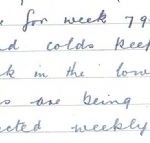 for week 79
colds keep
in the low
are being
ected weekly